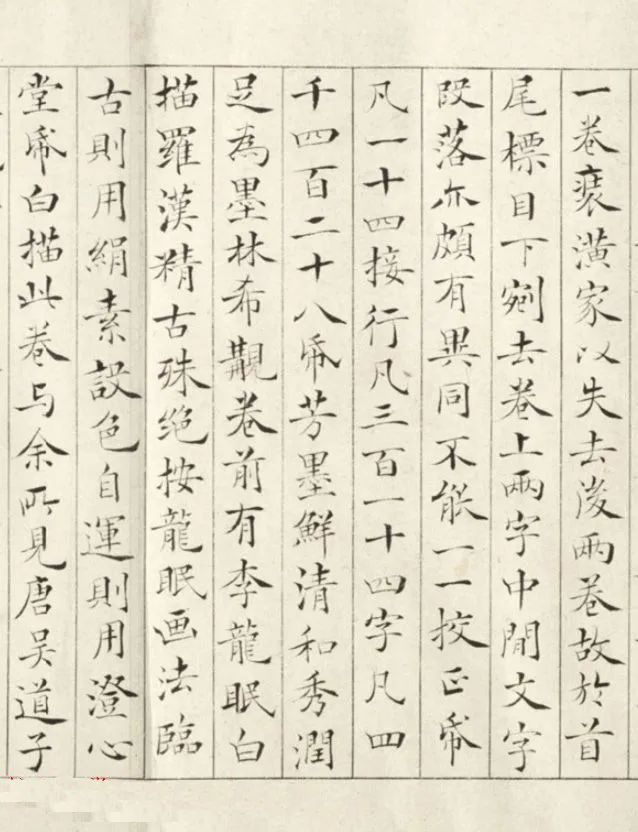 一卷裝潢家以失去後兩卷故於首
尾標目下剜去卷上兩字中間文字
段落亦頗有異同不能一一校正帋
凡一十四接行凡三百一十四字凡四
千四百二十八帋芳墨鮮清和秀潤
足為墨林希覯卷前有李龍眠白
描羅漢精古殊絶按龍眠画法臨
古則用絹素設色自運則用澄心
堂帋白描此卷与余所見唐吴道子